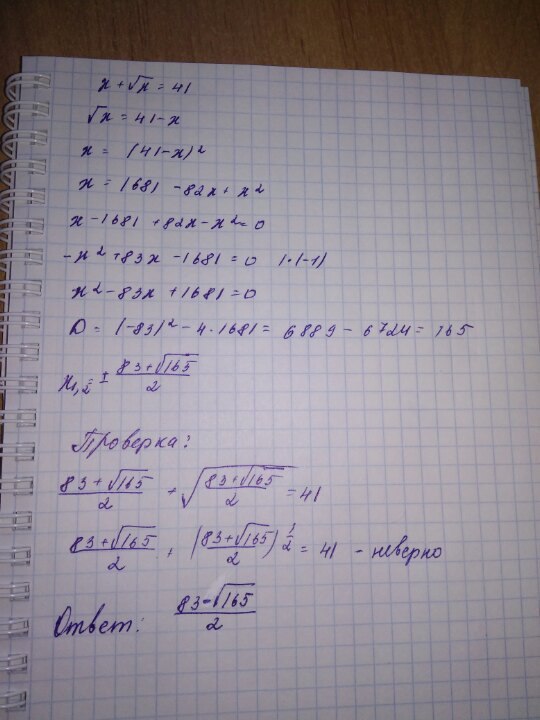 x + √x = 41
√x = 41 - x
x = (41 - x)²
x = 1681 - 82x + x²
x - 1681 + 82x - x² = 0
-x² + 83x - 1681 = 0 | · (-1)
x² - 83x + 1681 = 0
D = (-83)² - 4 · 1681 = 6889 - 6724 = 165
x₁,₂ = ± (83 + √165)/2
Проверка:
(83 + √165)/2 + √((83 + √165)/2) = 41
(83 + √165)/2 + ((83 + √165)/2)^(1/2) = 41 - неверно
Ответ: (83 - √165)/2